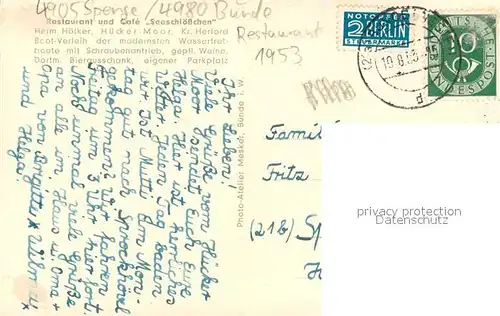 4905 Spenge / 4980 Bünde
Restaurant und Café „Seeschlößchen“
Heim Hölker, Hücker-Moor, Kr. Herford
Boot-Verleih der modernsten Wassertret-
boote mit Schraubenantrieb, gepfl. Weine,
Dortm. Bierausschank, eigener Parkplatz
Restaurant
1953
NOTOPFER
2 BERLIN
STEUERMARKE
DEUTSCHE
BUNDESPOST
10
Ihr Lieben!
Viele Grüße vom Hücker
Moor sendet Euch Eure
Helga. Hier ist herrliches
Wetter. Jeden Tag baden
wir. Ist Mutti am Mon-
tag gut nach Sprockhövel
gekommen? Wir fahren
Freitag um 3 Uhr hier fort.
Noch einmal viele Grüße
an alle im Haus u. Oma +
Opa von Brigitte + Wilma
und Helga!
Photo-Atelier Meskel, Bünde i. W.
Famili
Fritz
(21b) Sp
privacy protection
Datenschutz